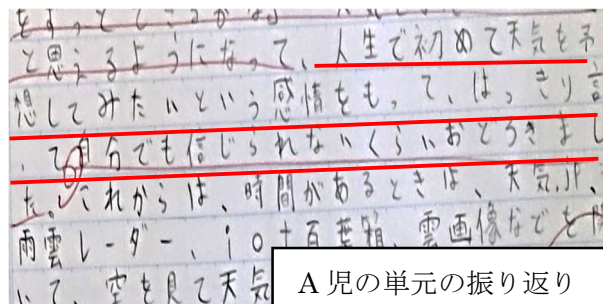 と思えるようになって、人生で初めて天気を予
想してみたいという感情をもって、はっきり言
って自分でも信じられないくらいおどろきまし
た。これからは、時間があるときは、天気.jp、
雨雲レーダー、 雲画像などを
いて、空を見て天気
A児の単元の振り返り